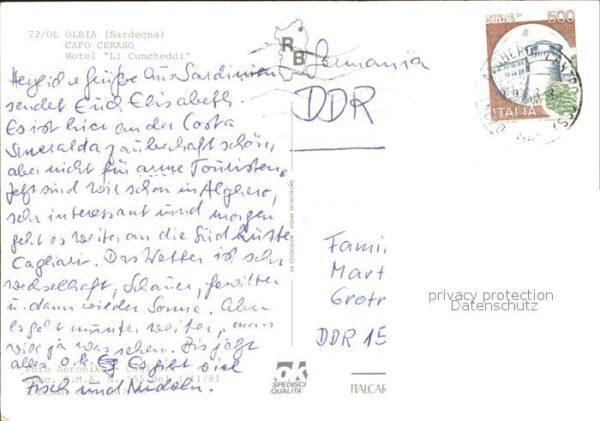 72/OL OLBIA (Sardegna)
CAPO CERASO
Hotel "Li Cuncheddi"
Herzliche Grüße aus Sardinien
sendet Euch Elisabeth.
Es ist hier an der Costa
Smeralda zauberhaft schön,
aber nicht für arme Touristen.
Jetzt sind wir schon in Alghero,
sehr interessant und morgen
geht es weiter an die Südküste
Cagliari. Das Wetter ist sehr
wechselhaft, Schauer, Gewitter
u. dann wieder Sonne. Aber
es geht munter weiter, man
will ja was sehen. Bis jetzt
alles o.k. Es gibt viel
Fisch und Nudeln.
RB
Germania
DDR
CASTELLO DI
ROVERETO
500
ITALIA
Fami
Mart
Grotr
DDR 15
privacy protection
Datenschutz
Foto Aeronike
OK
SPEDISCI
QUALITA'
ITALCAR